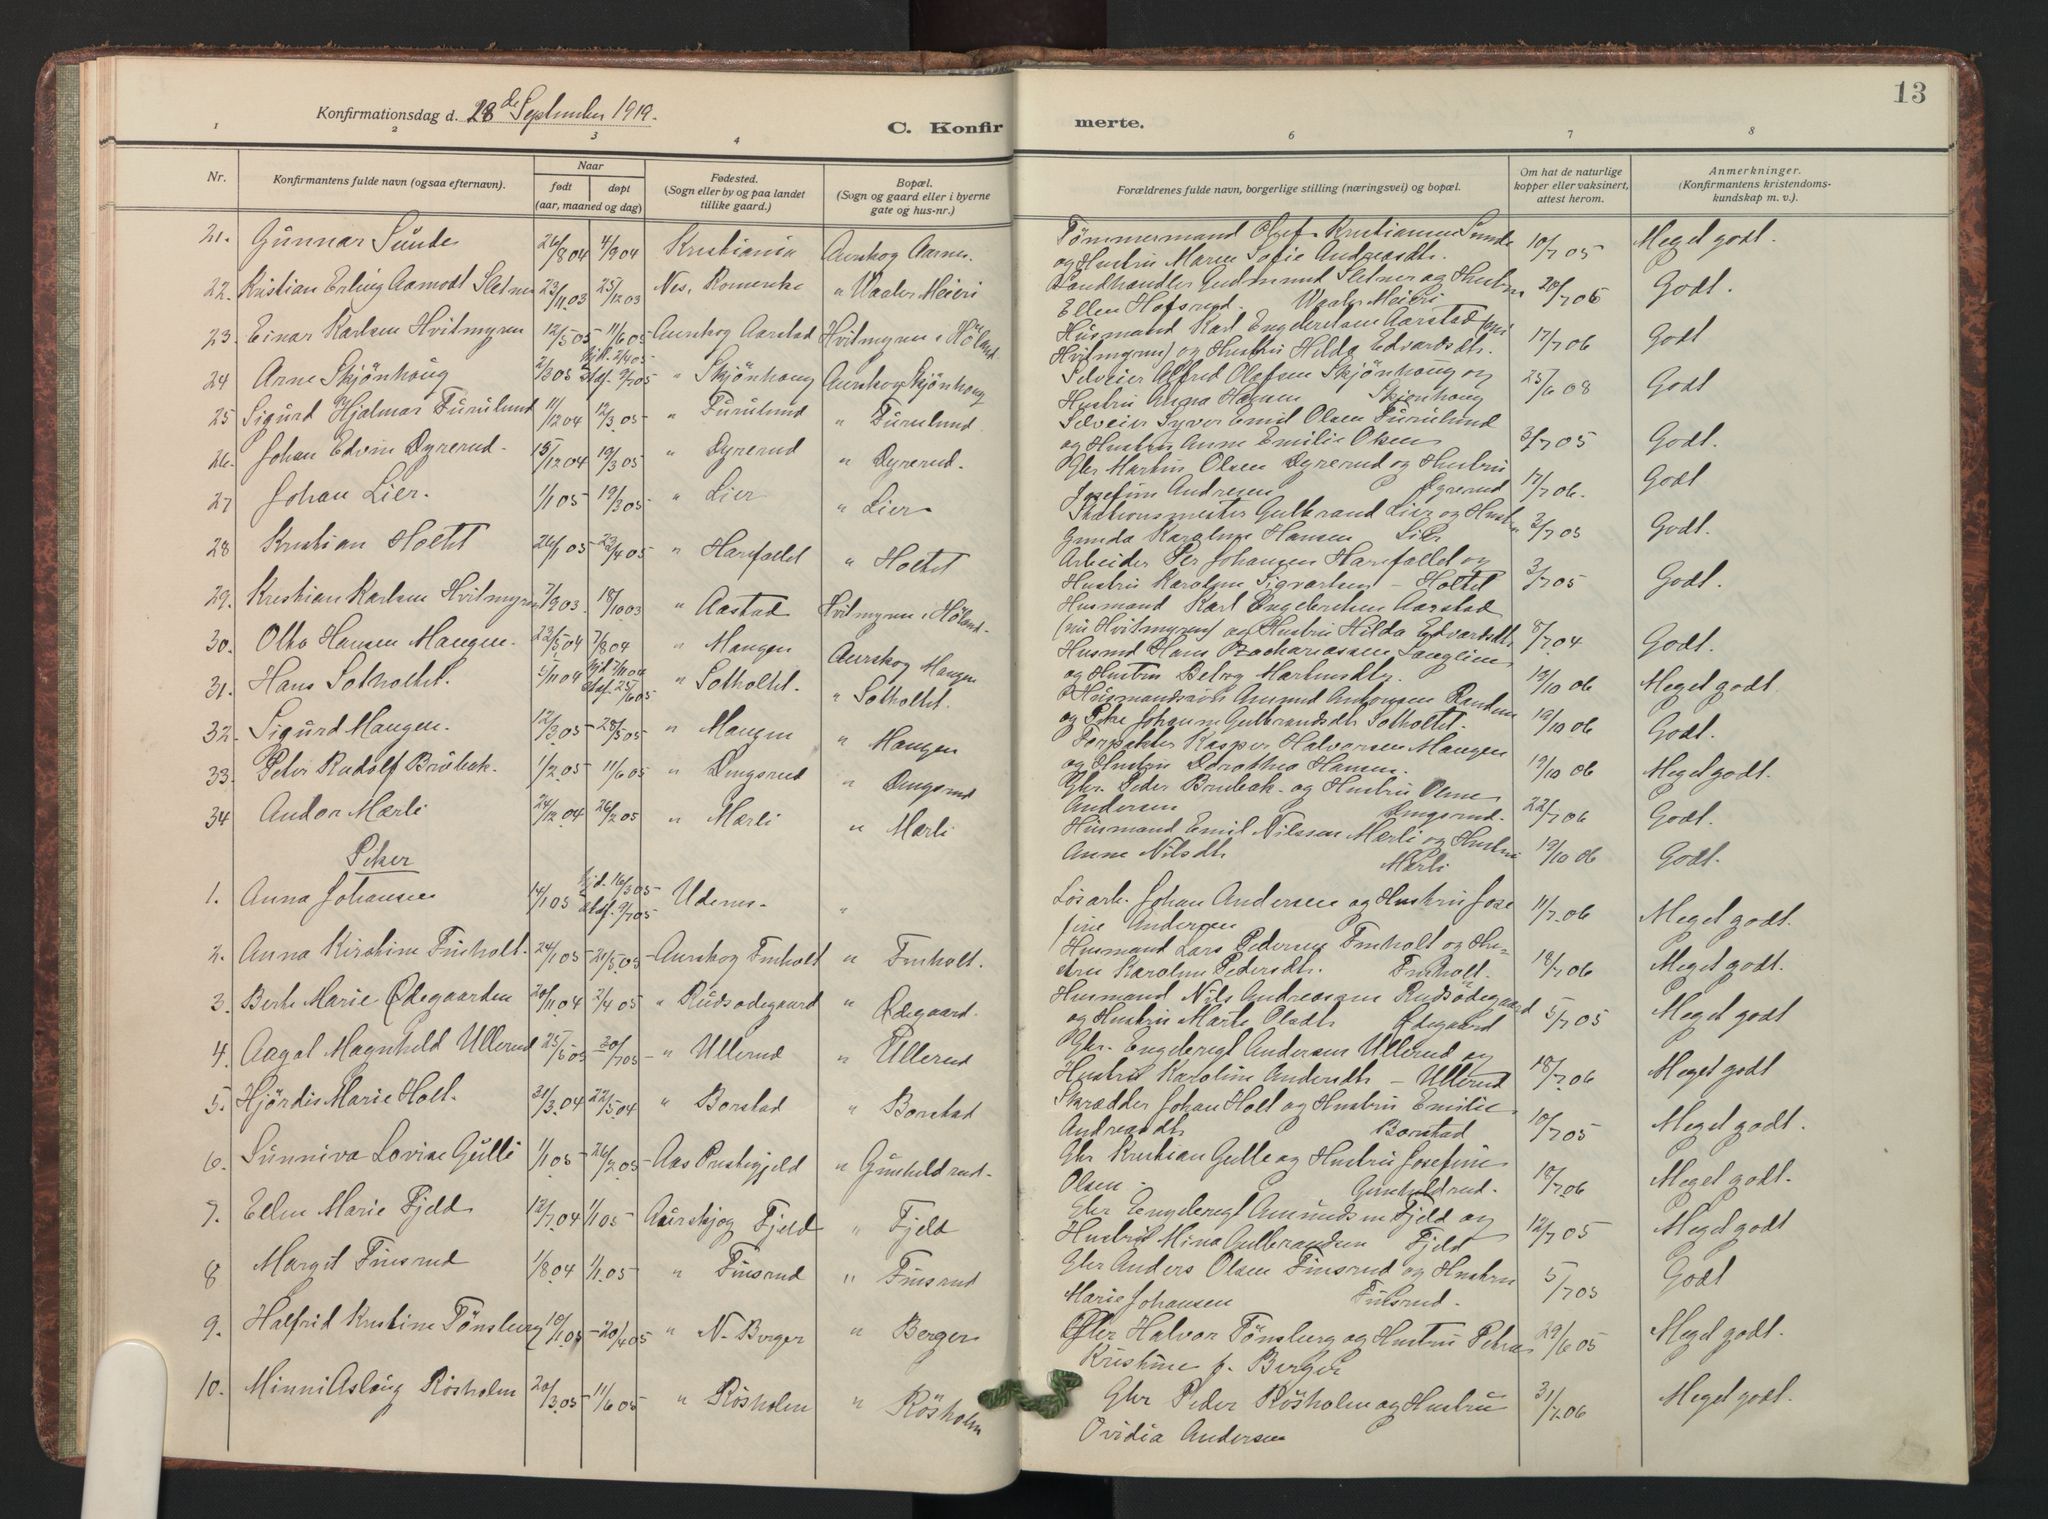 13
Konfirmationsdag d. 28de September 1919.
C. Konfirmerte.
1 2 3 4 6 7 8
Nr.
Konfirmantens fulde navn (ogsaa efternavn).
Naar
født døpt
(aar, maaned og dag)
Fødested.
(Sogn eller by og paa landet
tillike gaard.)
Bopæl.
(Sogn og gaard eller i byerne
gate og hus-nr.)
Forældrenes fulde navn, borgerlige stilling (næringsvei) og bopæl.
Om hat de naturlige
kopper eller vaksinert,
attest herom.
Anmerkninger.
(Konfirmantens kristendoms-
kundskap m. v.).
21. Gunnar Sunde 26/8 04 4/9 04 Kristiania Aurskog Aarnes. Tømmermand Olaf Kristiansen Sunde 10/7 05 Meget godt.
og Hustru Maren Sofie Andreasdtr.
22. Kristian Erling Aamodt Sletner 23/11 03 25/12 03 Nes, Romerike " Vaaler Meieri Landhandler Gudmund Sletner og Hustru 20/7 05 Godt.
Ellen Hofsrud. Vaaler Meieri
23. Einar Karlsen Hvitmyren 12/5 05 11/6 05 Aurskog Aarstad Hvitmyren i Höland. Husmand Karl Engebretsen Aarstad (nu 17/7 06 Godt
Hvitmyren) og Hustru Hilda Edvardsdtr.
24 Arne Skjönhaug 2/3 05 hjd. 2/4 05 stdf. 9/7 05 " Skjönhaug Aurskog Skjönhaug Selveier Alfred Olafsen Skjönhaug og 25/6 08 Godt
Hustru Anna Hansen Skjönhaug
25 Sigurd Hjalmar Furulund 11/12 04 12/3 05 " Furulund " Furulund. Selveier Syver Emil Olsen Furulund 3/7 05 Godt.
og Hustru Anne Emilie Olsen
26. Johan Edvin Dyrerud. 15/12 04 19/3 05 " Dyrerud " Dyrerud. Gbr Martin Olsen Dyrerud og Hustru 17/7 06. Godt
Josefine Andresen Dyrerud
27 Johan Lier. 1/1 05 19/3 05 " Lier " Lier Stationsmester Gulbrand Lier og Hustru 3/7 05 Godt.
Gunda Karoline Hansen Lier
28 Kristian Holtet 26/1 05 23/4 05 " Harefallet " Holtet Arbeider Per Johansen Harefallet og 3/7 05 Godt.
Hustru Karoline Sigvartsen - Holtet
29. Kristian Karlsen Hvitmyren 7/9 03 18/10 03 " Aastad Hvitmyren i Höland. Husmand Karl Engebretsen Aarstad 8/7 04 Godt.
(nu Hvitmyren) og Hustru Hilda Edvardsdtr.
30. Otto Hansen Mangen. 22/5 04 7/8 04 " Mangen Aurskog Mangen Husmd Hans Zachariassen 19/10 06 Meget godt
og Hustru Martinsdtr.
31. Hans Sotholtet. 5/11 04 hjd. 7/11 04 stdf. 25/6 05 " Sotholtet. " Sotholtet. Husmandssøn Amund Andersen 19/10 06 Godt.
og Pike Johanne Gulbrandsdtr Sotholtet.
32. Sigurd Mangen. 12/3 05 28/5 05 " Mangen " Mangen Forpakter Kasper Halvorsen Mangen 19/10 06 Meget godt.
og Hustru Dorothea Hansen.
33. Peter Rudolf Brubak. 1/2 05 11/6 05 " Dingsrud " Dingsrud Gbr. Peder Brubak og Hustru Oline 22/7 06 Godt.
Andersen Dingsrud.
34 Andor Mærli 24/12 04 26/2 05 " Mærli " Mærli Husmand Emil Nilssen Mærli og Hustru 19/10 06 Godt.
Anne Nilsdtr Mærli
Piker
1. Anna Johansen 14/1 05 hjd. 16/3 05 stdf. 9/7 05 Udenes " Løsarb. Johan Andersen og Hustru Jose 11/7 06 Meget godt.
fine Andersen
2. Anna Kirstine Finholt. 24/1 05 21/5 05 Aurskog Finholt " Finholt. Husmand Lars Pedersen Finholt og Hu- 18/7 06 Meget godt.
stru Karoline Pedersdtr. Finholt.
3. Berte Marie Ødegaarden 20/11 04 2/4 05 " Rudsødegaard " Ødegaard. Husmand Nils Andreassen Rudsödegaard 5/7 05 Meget godt
og Hustru Marte Olsdtr Ødegaard
4. Aagot Magnhild Ullerud 25/5 05 30/7 05 " Ullerud " Ullerud Gbr. Engebregt Andersen Ullerud og 18/7 06 Meget godt
Hustru Karoline Andersdtr - Ullerud
5. Hjördis Marie Holt. 31/3 04 22/5 04 " Borstad " Borstad Skrædder Johan Holt og Hustru Emilie 10/7 05 Meget godt.
Andreasdtr Borstad
6. Sunniva Lovise Gulli 1/1 05 26/2 05 Aas Prestegjeld " Gunhildrud. Gbr Kristian Gulle og Hustru Josefine 18/7 06 Meget godt.
Olsen - Gunhildrud.
7. Ellen Marie Fjeld 12/7 04 1/1 05 Aurskog Fjeld " Fjeld Gbr Engebregt Amundsen Fjeld og 12/7 05 Meget godt
Hustru Mina Gulbrandsen Fjeld
8 Margit Finsrud 1/8 04 1/1 05 " Finsrud " Finsrud Gbr Anders Olsen Finsrud og Hustru 5/7 05 Godt
Marie Johansen Finsrud.
9. Halfrid Kristine Tönsberg 10/1 05 20/4 05 " N. Berger " Berger Gbr Halvor Tönsberg og Hustru Petra 29/6 05 Meget godt.
Kristine f. Berger
10. Minni Aslaug Rösholm 20/3 05 11/6 05 " Rösholm " Rösholm Gbr Peder Rösholm og Hustru 31/7 06 Meget godt.
Ovidia Andersen